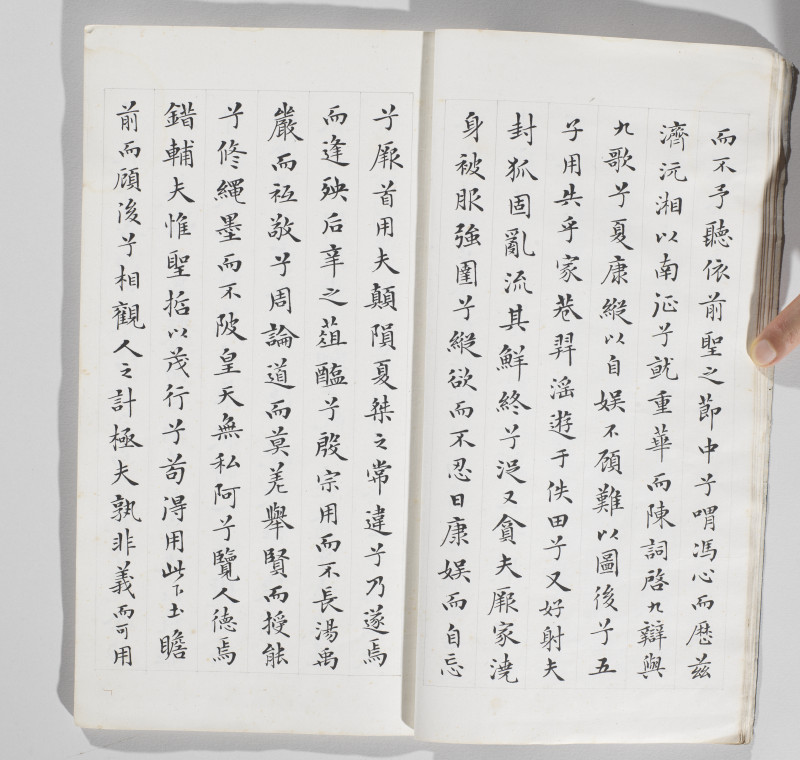 而不予聽依前聖之節中兮喟馮心而歷茲
濟沅湘以南征兮就重華而陳詞啓九辯與
九歌兮夏康縱以自娛不顧難以圖後兮五
子用失乎家巷羿淫遊于佚田兮又好射夫
封狐固亂流其鮮終兮浞又貪夫厥家澆
身被服強圉兮縱欲而不忍日康娛而自忘
兮厥首用夫顛隕夏桀之常違兮乃遂焉
而逢殃后辛之葅醢兮殷宗用而不長湯禹
嚴而祗敬兮周論道而莫差舉賢而授能
兮修繩墨而不陂皇天無私阿兮覽人德焉
錯輔夫惟聖哲以茂行兮苟得用此下土瞻
前而顧後兮相觀人之計極夫孰非義而可用